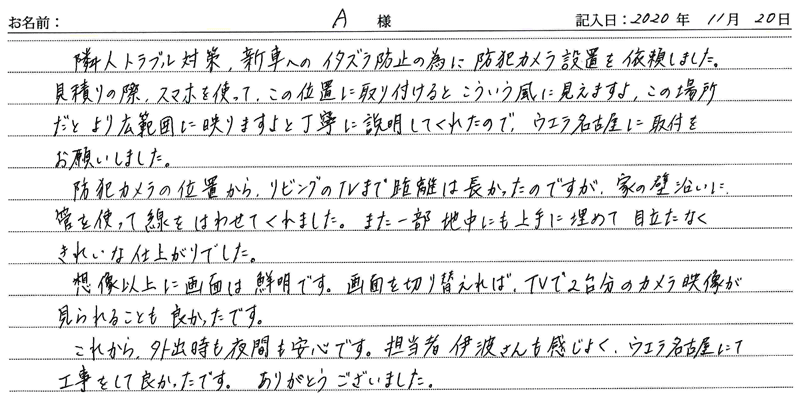 お名前： A 様 記入日：2020年 11月 20日
隣人トラブル対策、新車へのイタズラ防止の為に防犯カメラ設置を依頼しました。
見積りの際、スマホを使って、この位置に取り付けるとこういう風に見えますよ、この場所
だとより広範囲に映りますよと丁寧に説明してくれたので、ウエラ名古屋に取付を
お願いしました。
防犯カメラの位置から、リビングのTVまで距離は長かったのですが、家の壁沿いに
管を使って線をはわせてくれました。また一部地中にも上手に埋めて目立たなく
きれいな仕上がりでした。
想像以上に画面は鮮明です。画面を切り替えれば、TVで2台分のカメラ映像が
見られることも良かったです。
これから、外出時も夜間も安心です。担当者伊波さんも感じよく、ウエラ名古屋にて
工事をして良かったです。 ありがとうございました。